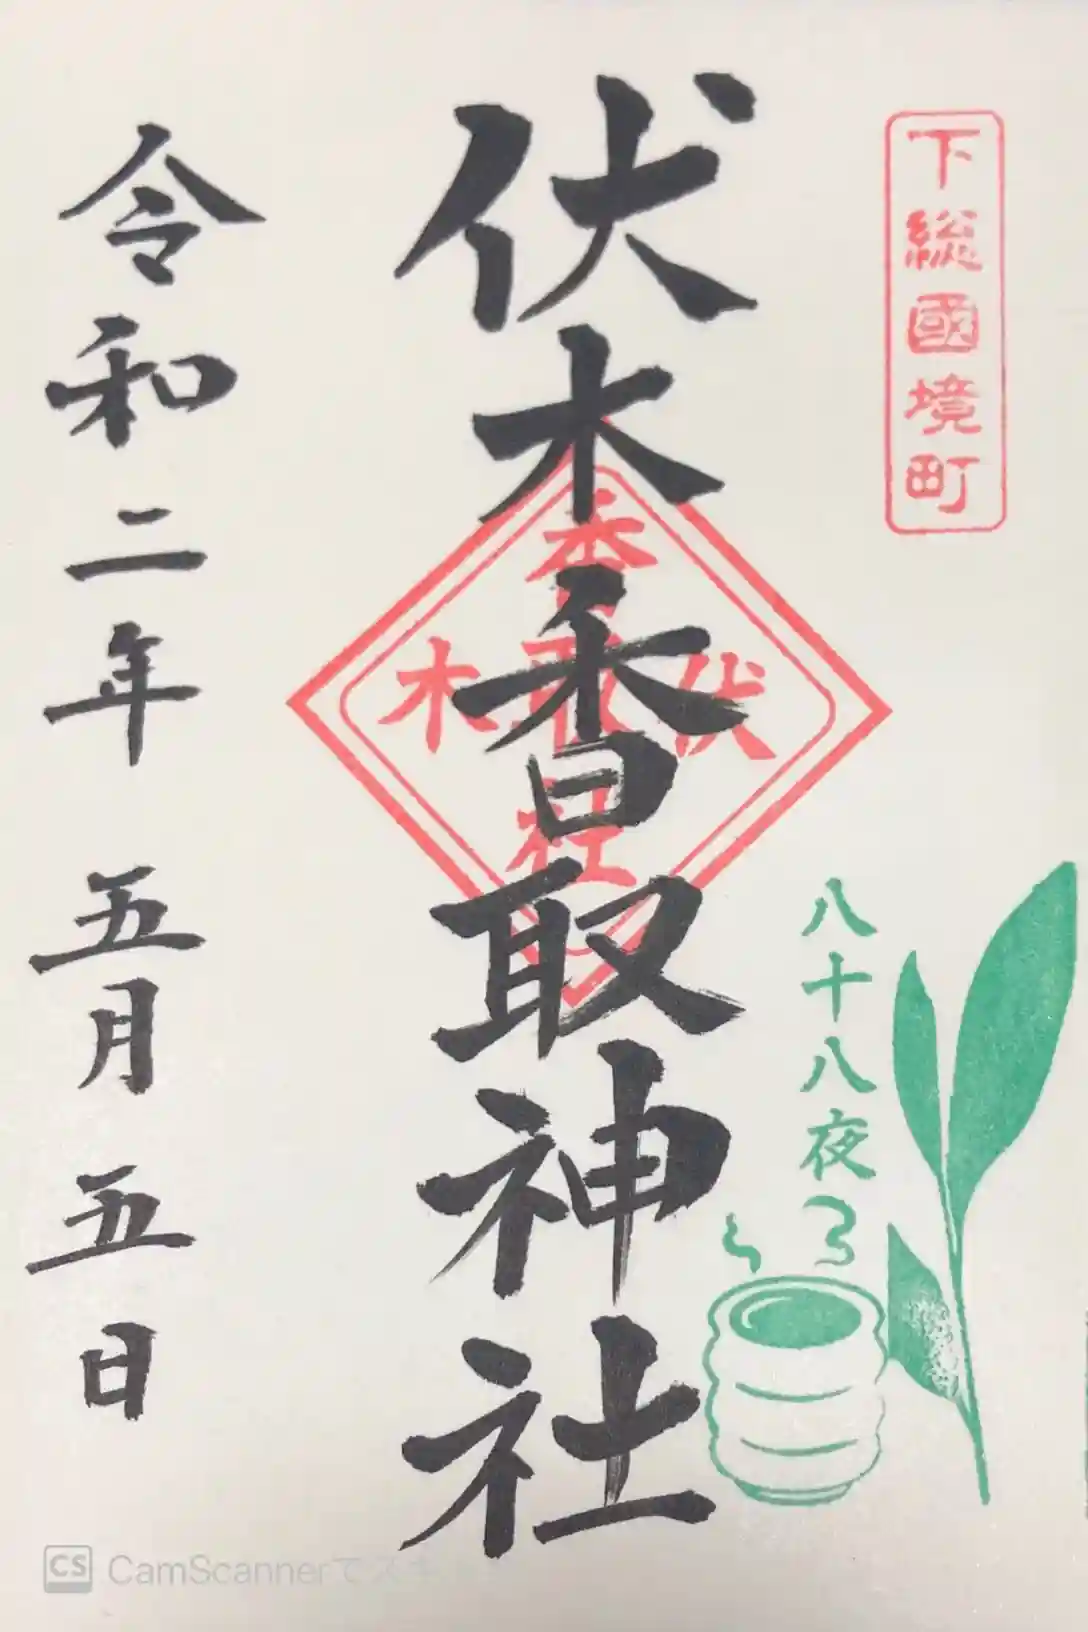 下総國境町
伏木香取神社
伏木
香取社
八十八夜
令和二年 五月五日
CS CamScannerでスキ